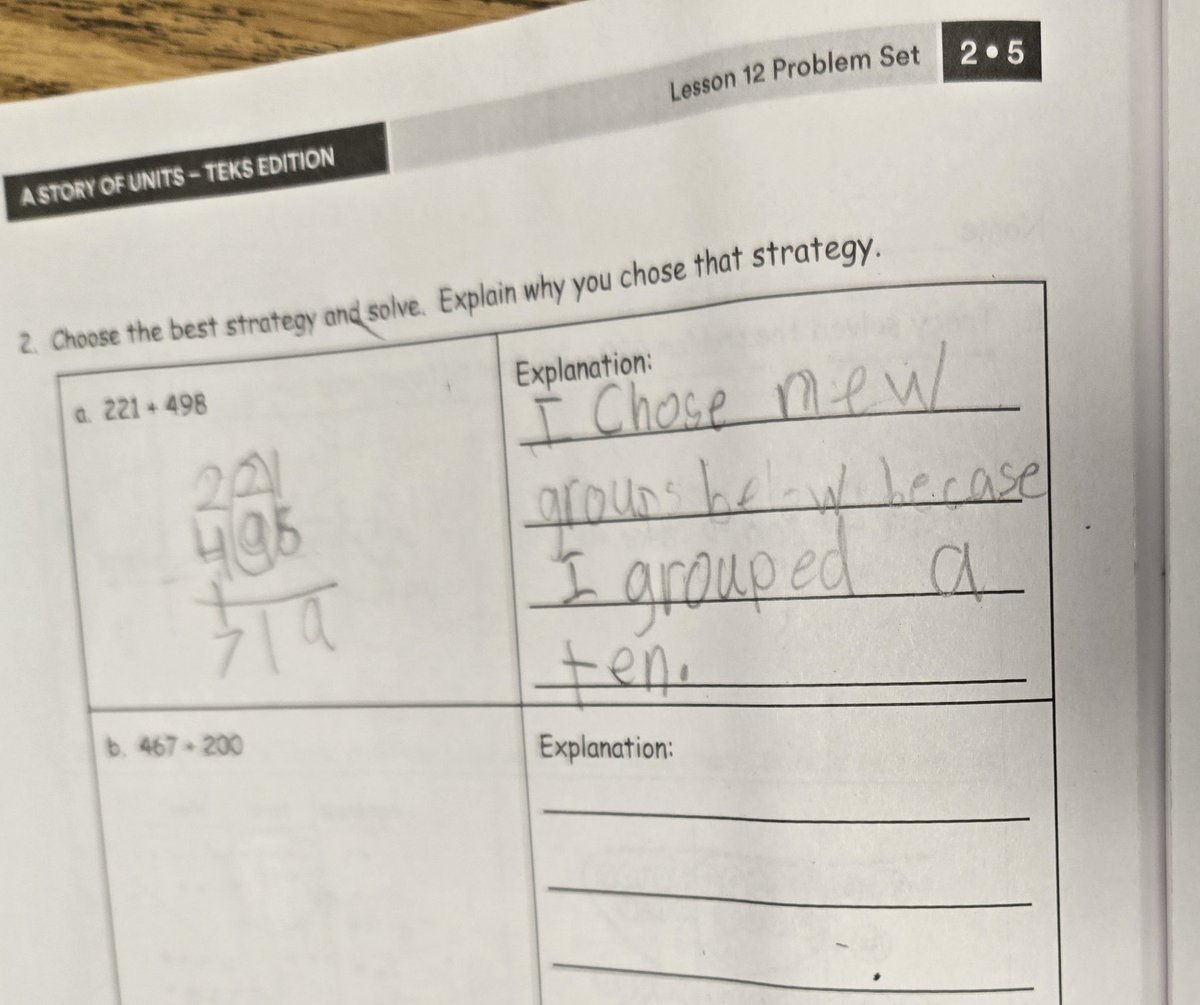 Lesson 12 Problem Set 2•5
A STORY OF UNITS – TEKS EDITION
2. Choose the best strategy and solve. Explain why you chose that strategy.
a. 221 + 498
221
498
1
719
Explanation:
I Chose new
groups below becase
I grouped a
ten.
b. 467 + 200
Explanation: